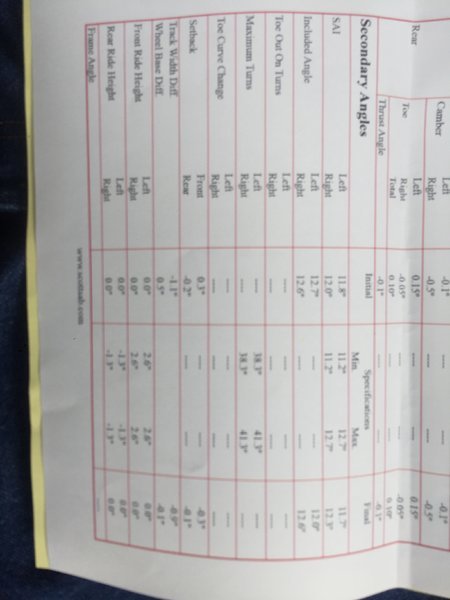 Camber Left -0.1° ---- ---- -0.1°
Right -0.5° ---- ---- -0.5°
Rear Toe Left 0.15° ---- ---- 0.15°
Right -0.05° ---- ---- -0.05°
Total 0.10° ---- ---- 0.10°
Thrust Angle -0.1° ---- ---- -0.1°
Secondary Angles Initial Specifications Final
Min. Max.
SAI Left 11.8° 11.2° 12.7° 11.7°
Right 12.0° 11.2° 12.7° 12.3°
Included Angle Left 12.7° ---- ---- 12.0°
Right 12.6° ---- ---- 12.6°
Toe Out On Turns Left ---- ---- ---- ----
Right ---- ---- ---- ----
Maximum Turns Left ---- 38.3° 41.3° ----
Right ---- 38.3° 41.3° ----
Toe Curve Change Left ---- ---- ---- ----
Right ---- ---- ---- ----
Setback Front 0.3° ---- ---- -0.3°
Rear -0.2° ---- ---- -0.1°
Track Width Diff. -1.1° -0.9°
Wheel Base Diff. 0.5° -0.1°
Front Ride Height Left 0.0° 2.6° 2.6° 0.0°
Right 0.0° 2.6° 2.6° 0.0°
Rear Ride Height Left 0.0° -1.3° -1.3° 0.0°
Right 0.0° -1.3° -1.3° 0.0°
Frame Angle ----